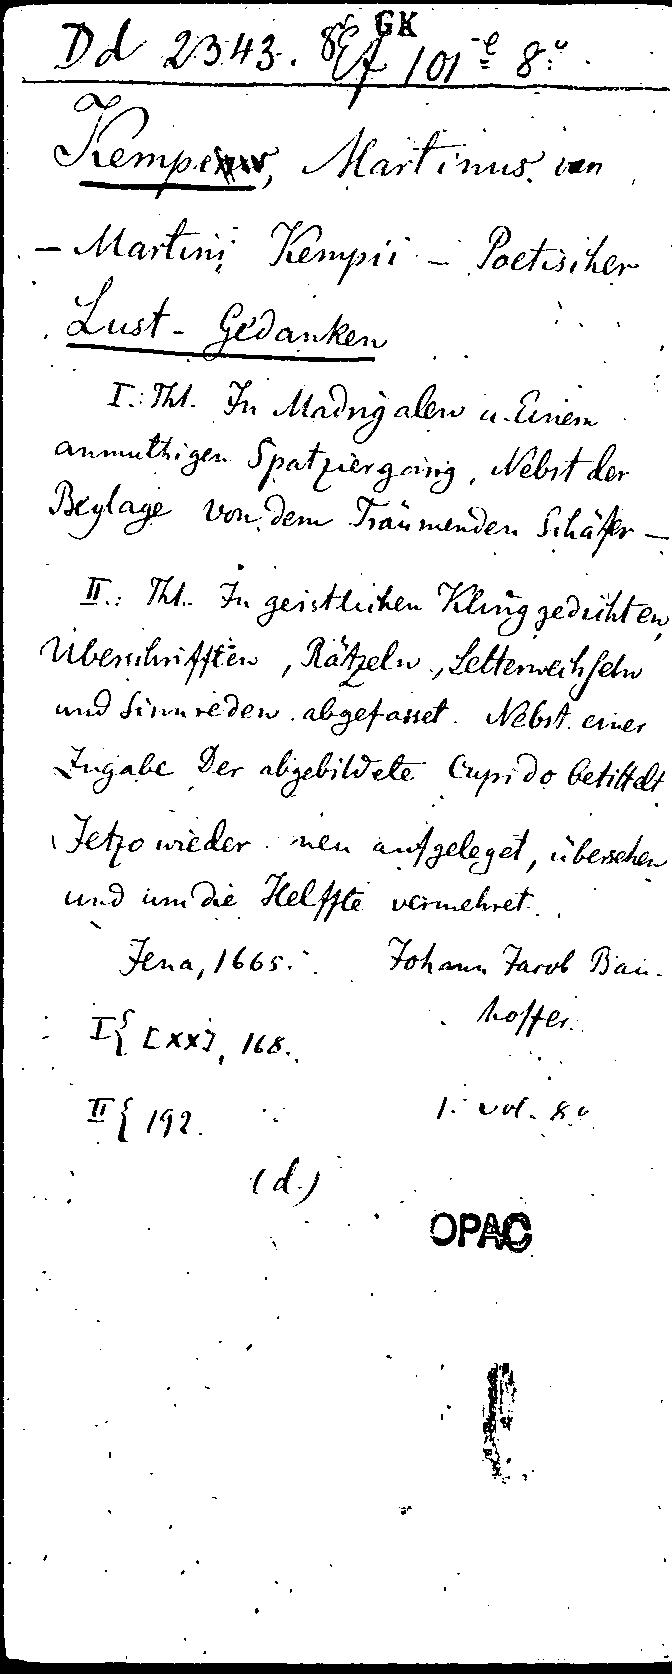 GK
Dd 2343. 8º Ef 101-e 8:º
Kempe, Martinus von
- Martini Kempii - Poetischer
Lust-Gedanken
I: Thl. In Madrigalen u. Einem
anmuthigen Spatziergang, Nebst der
Beylage von dem Träumenden Schäfer -
II.: Thl. In geistlichen Klinggedichten,
Überschrifften, Rätzeln, Letterwechseln
und Sinnreden abgefasset. Nebst einer
Zugabe Der abgebildete Cupido betittelt
Jetzo wieder neu aufgeleget, übersehen
und um die Helffte vermehret.
Jena, 1665. Johann Jacob Bau-
hoffer.
I { [XX], 168.
II { 192. 1. vol. 8º
(d.)
OPAC